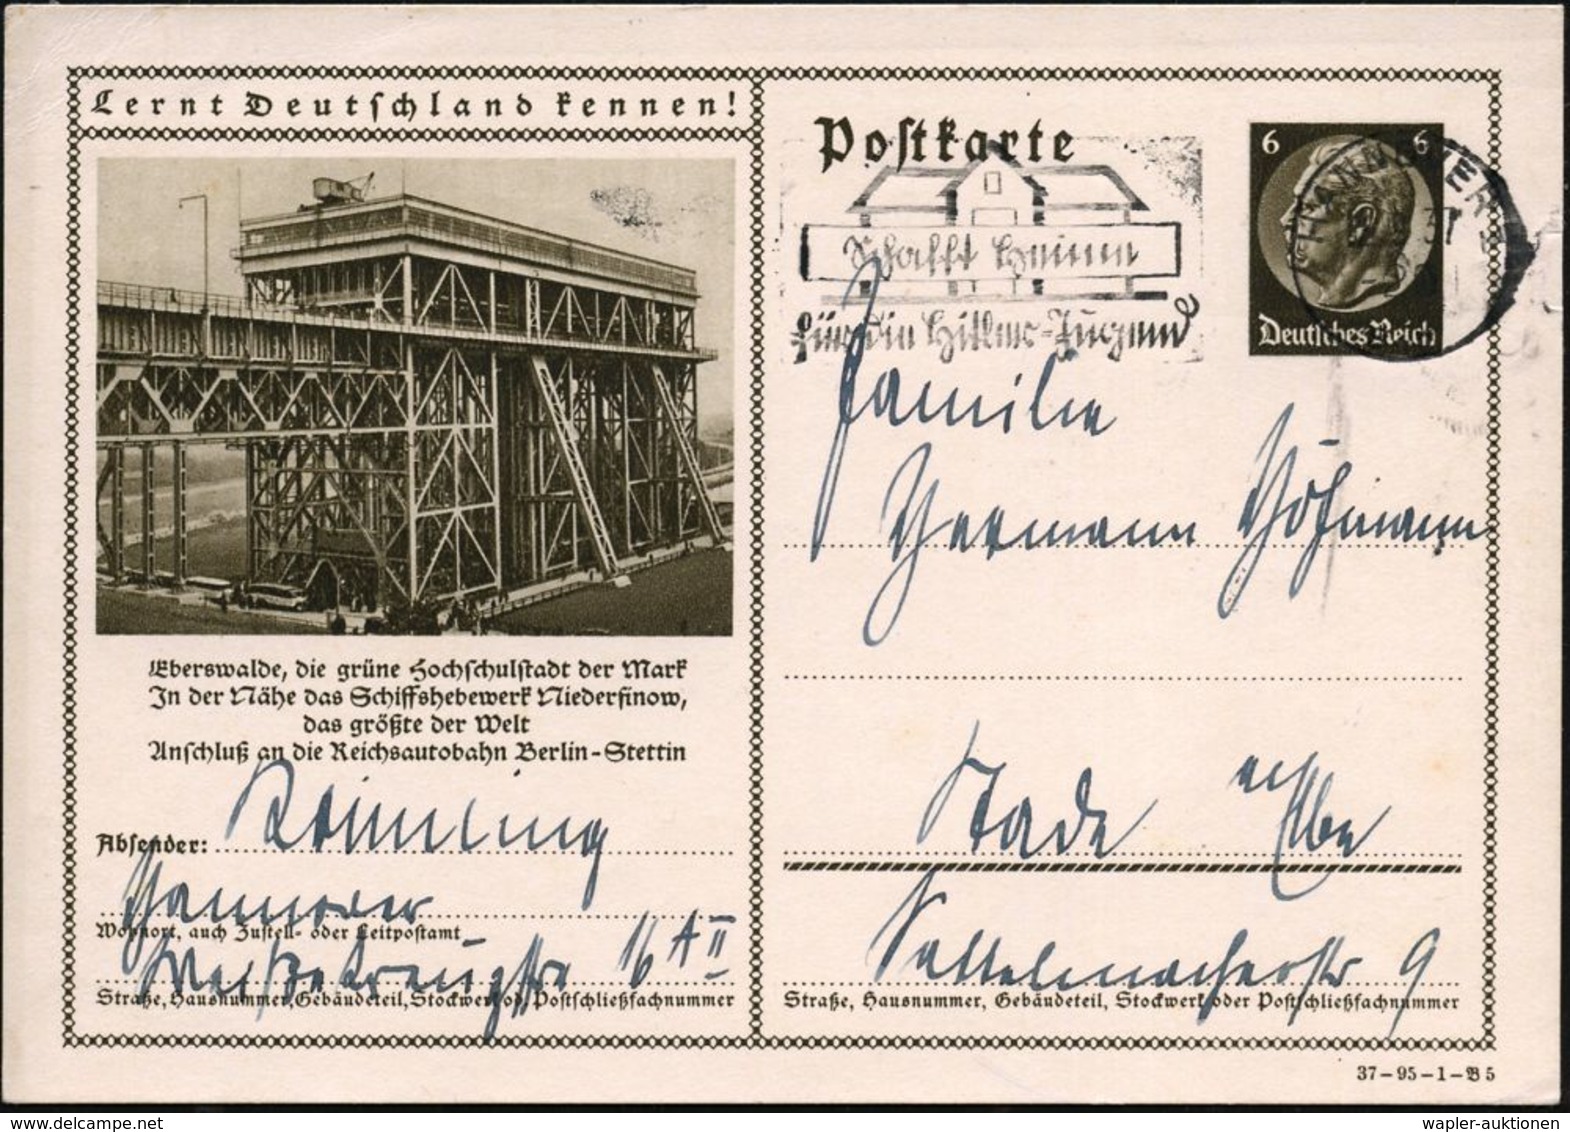 Lernt Deutschland kennen!
Eberswalde, die grüne Hochschulstadt der Mark
In der Nähe das Schiffshebewerk Niederfinow,
das größte der Welt
Anschluß an die Reichsautobahn Berlin-Stettin
Absender:
Hannover
Wohnort, auch Zustell- oder Leitpostamt
Weißekreuzstr 16 A II
Straße, Hausnummer, Gebäudeteil, Stockwerk od. Postschließfachnummer
Postkarte
Schafft Heime
für die Hitler-Jugend
6 6
Deutsches Reich
HANNOVER
Familie
Hermann Höfmann
Stade a/Elbe
Sattelmacherstr 9
Straße, Hausnummer, Gebäudeteil, Stockwerk oder Postschließfachnummer
37-95-1-B5
wapler-auktionen